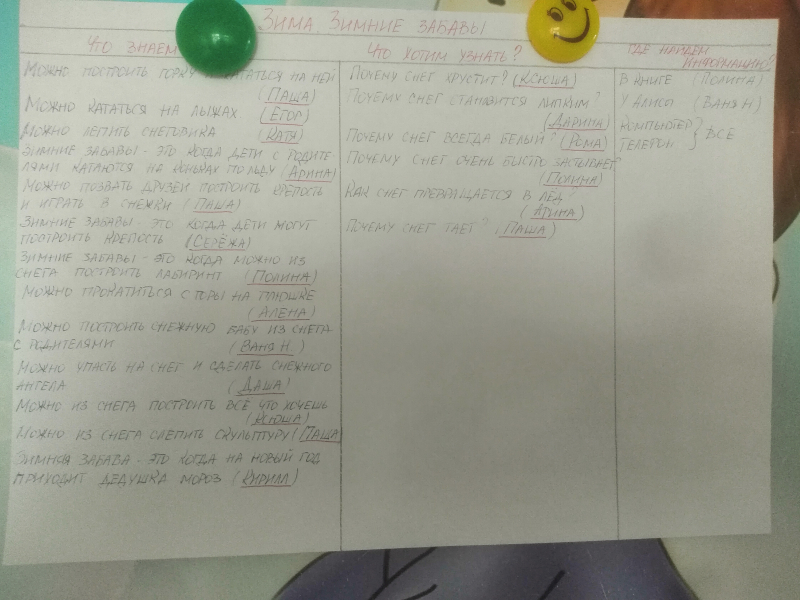 Зима. Зимние забавы
Что знаем
Можно построить горку и кататься на ней
(Паша)
Можно кататься на лыжах. (Егор)
Можно лепить снеговика (Катя)
Зимние забавы - это когда дети с родите-
лями катаются на коньках по льду (Арина)
Можно позвать друзей построить крепость
и играть в снежки (Паша)
Зимние забавы - это когда дети могут
построить крепость (Серёжа)
Зимние забавы - это когда можно из
снега построить лабиринт (Полина)
Можно прокатиться с горы на плюшке
(Алена)
Можно построить снежную бабу из снега
с родителями (Ваня Н.)
Можно упасть на снег и сделать снежного
ангела (Даша)
Можно из снега построить всё что хочешь
(Ксюша)
Можно из снега слепить скульптуру (Паша)
Зимняя забава - это когда на новый год
приходит Дедушка Мороз (Кирилл)
Что хотим узнать?
Почему снег хрустит? (Ксюша)
Почему снег становится липким?
(Дарина)
Почему снег всегда белый? (Рома)
Почему снег очень быстро застывает?
(Полина)
Как снег превращается в лёд?
(Арина)
Почему снег тает? (Паша)
Где найдём
информацию?
В книге (Полина)
У Алисы (Ваня Н)
Компьютер
Телефон } все